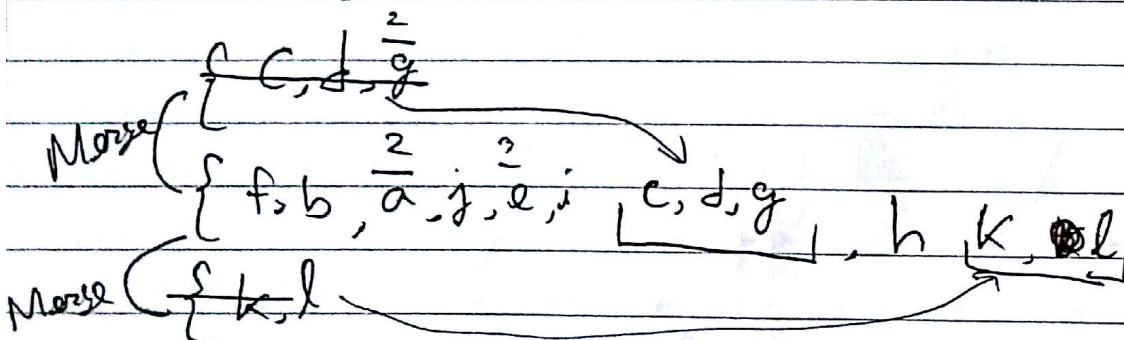 2
{ c, d, g
Merge
2 2
{ f, b, a, j, e, i c, d, g, h k, l
Merge { k, l